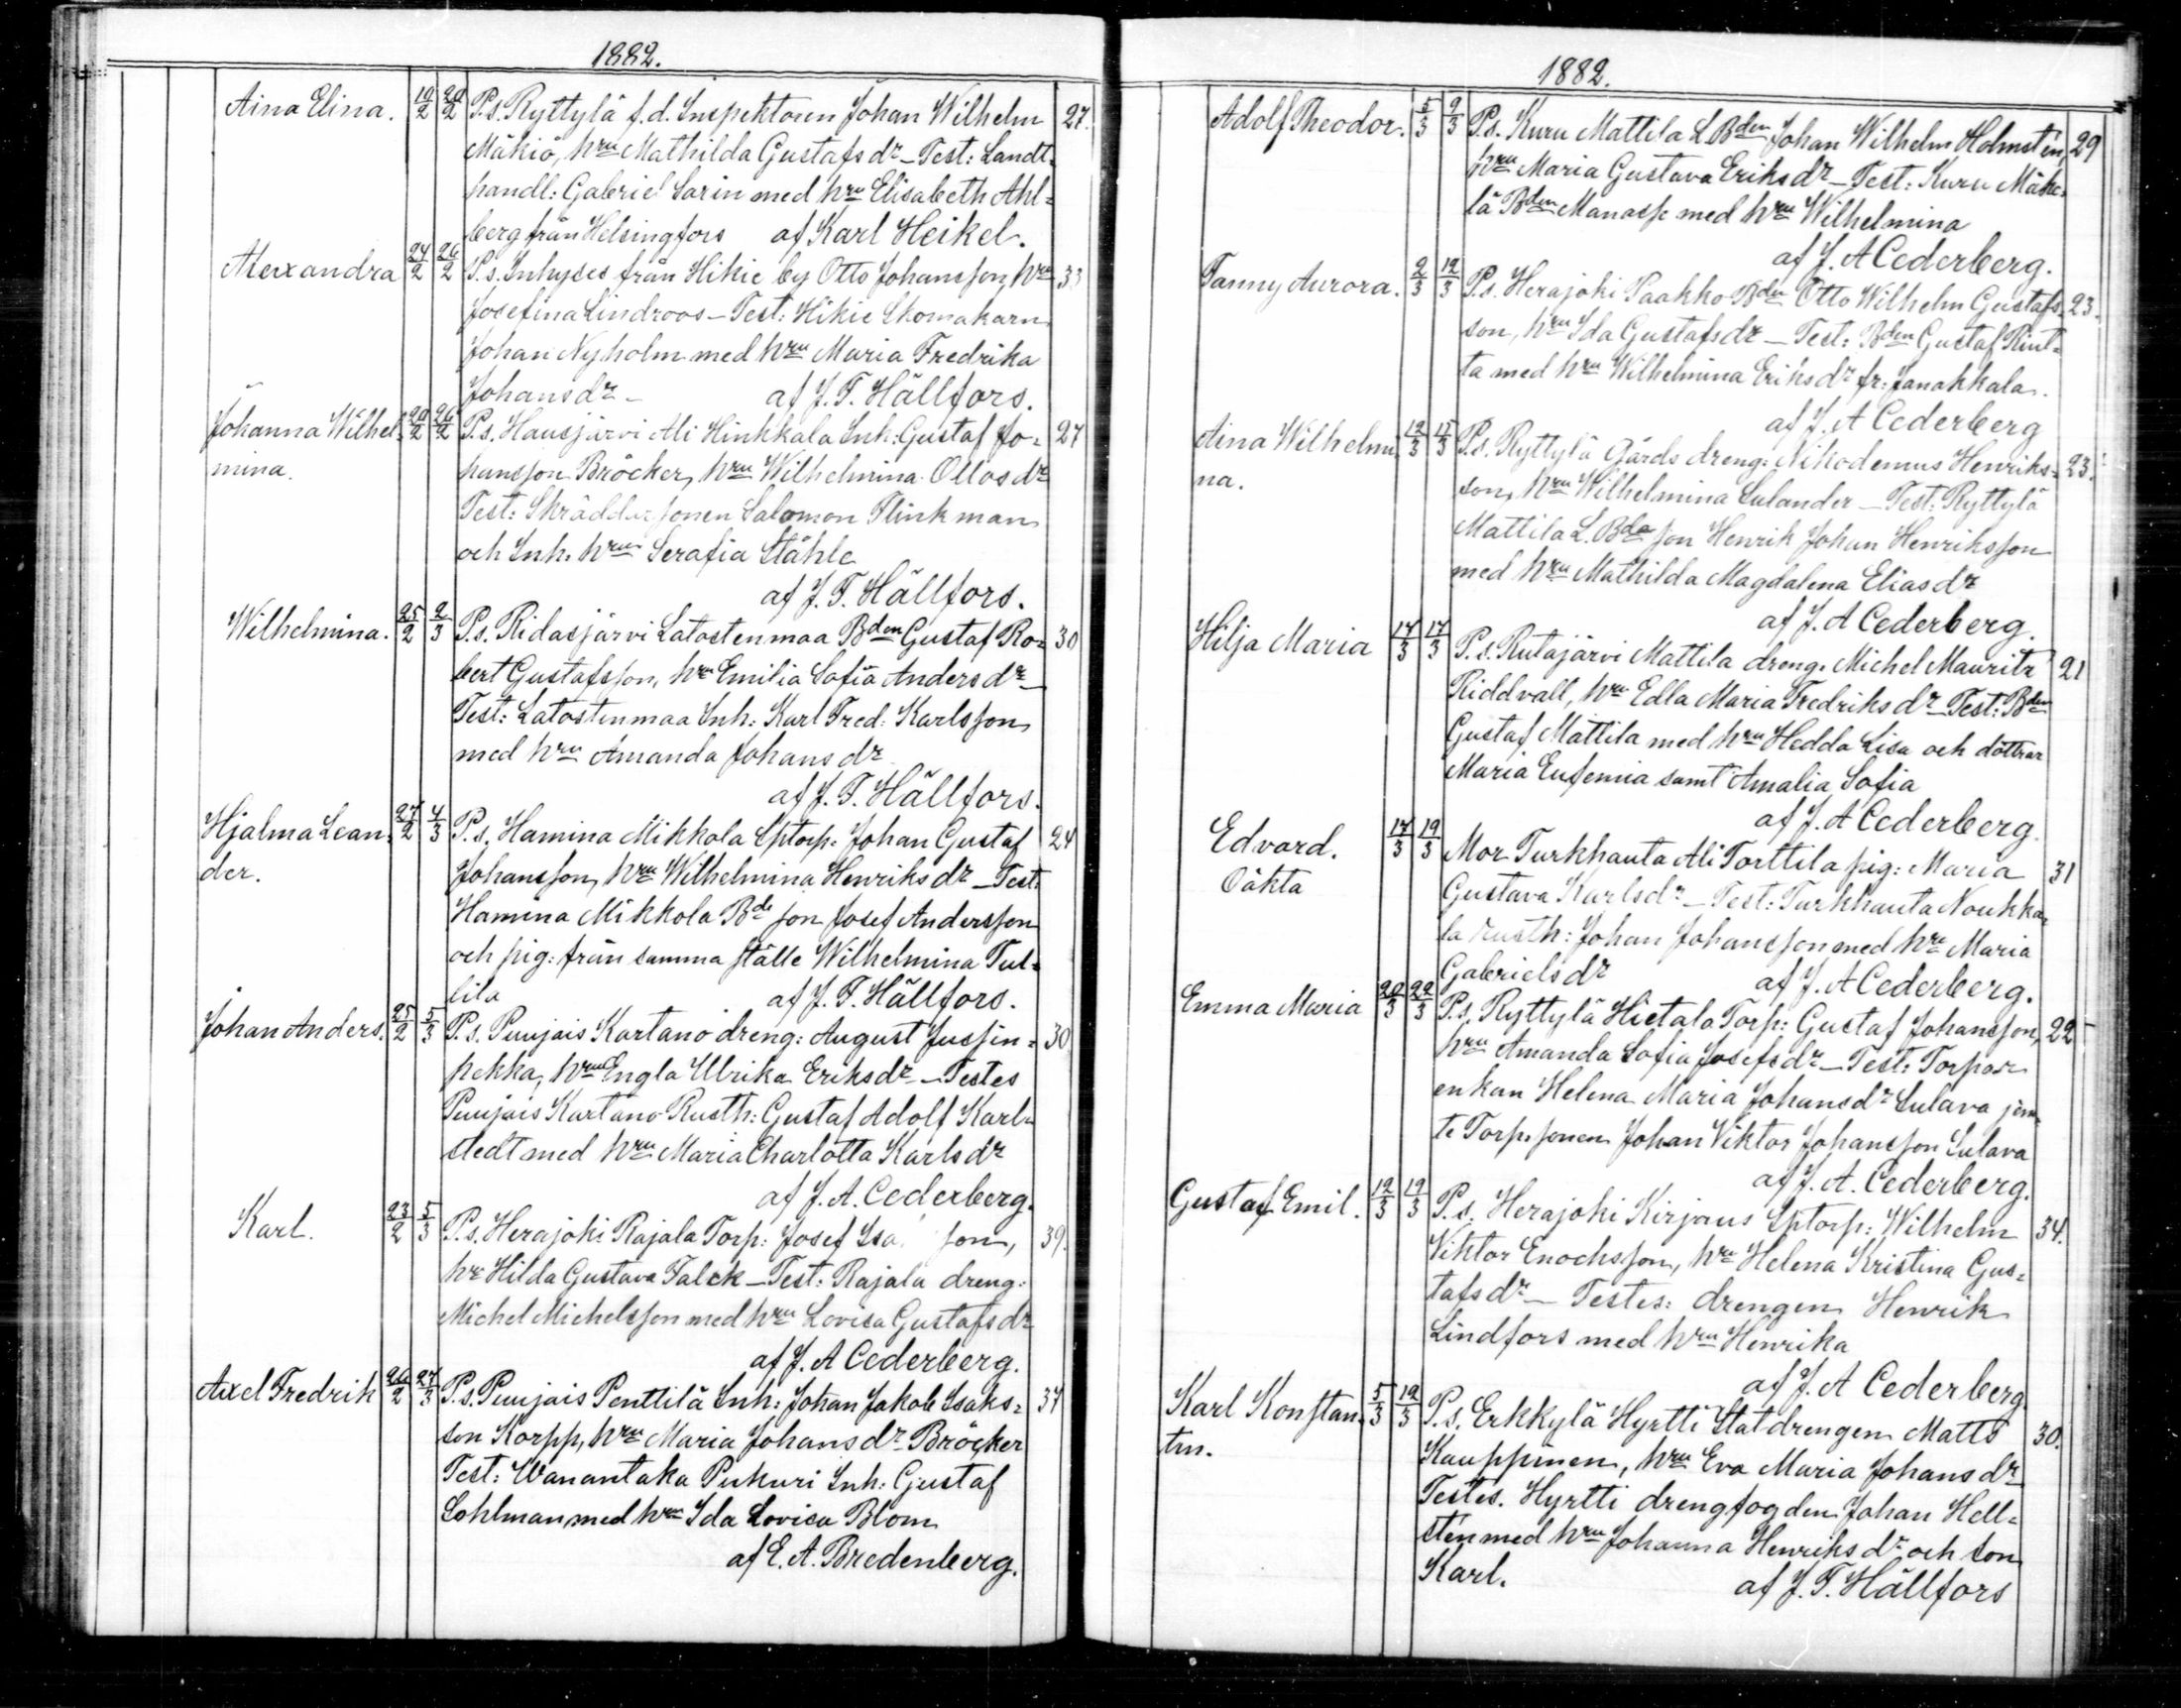 1882.
Aina Elina. 19/2 20/2 P.s. Ryttylä f.d. Inspektoren Johan Wilhelm 27.
Mäkiö, hru Mathilda Gustafsdr – Test: Landt-
handl: Gabriel Sarin med hru Elisabeth Ahl=
berg från Helsingfors af Karl Heikel.
Alexandra 24/2 26/2 P.s. Inhyses från Hikie by Otto Johansson, hru 33
Josefina Lindroos – Test: Hikie Skomakarn
Johan Nyholm med hru Maria Fredrika
Johansdr – af J. F. Hällfors.
Johanna Wilhel= 20/2 26/2 P.s. Hausjärvi Ali Hinkkala Inh: Gustaf Jo= 27
mina. hansson Bröcker, hru Wilhelmina Ollasdr
Test: Skräddarsonen Salomon Flinkman
och Inh. hru Serafia Ståhle
af J. F. Hällfors.
Wilhelmina. 25/2 2/3 P.s. Ridasjärvi Latostenmaa Bden Gustaf Ro= 30
bert Gustafsson, hru Emilia Sofia Andersdr –
Test: Latostenmaa Inh: Karl Fred: Karlsson
med hru Amanda Johansdr
af J. F. Hällfors.
Hjalma Lean= 27/2 4/3 P.s. Hamina Mikkola Sptorp: Johan Gustaf 24
der. Johansson, hru Wilhelmina Henriksdr – Test:
Hamina Mikkola Bde son Josef Andersson
och pig: från samma ställe Wilhelmina Tul=
lila af J. F. Hällfors.
Johan Anders. 25/2 5/3 P.s. Puujais Kartano dreng: August Jussin= 30
pekka, hru Engla Ulrika Eriksdr – Testes
Puujais Kartano Rusth: Gustaf Adolf Karl=
stedt med hru Maria Charlotta Karlsdr
af J. A. Cederberg.
Karl. 23/2 5/3 P.s. Herajoki Rajala Torp: Josef Isa son, 39.
hr Hilda Gustava Falck – Test: Rajala dreng:
Michel Michelsson med hru Lovisa Gustafsdr
af J. A Cederberg.
Axel Fredrik 26/2 27/3 P.s. Puujais Penttilä Inh: Johan Jakob Isaks= 37
son Korpp, hru Maria Johansdr Bröcker
Test: Wanantaka Pukuri Inh: Gustaf
Sohlman med hru Ida Lovisa Blom
af E. A. Bredenberg.
1882.
Adolf Theodor. 5/3 9/3 P.s. Kuru Mattila L Bden Johan Wilhelm Holmstén, 29
hru Maria Gustava Eriksdr – Test: Kuru Mäke=
lä Bden Manasse med hru Wilhelmina
af J. A Cederberg.
Fanny Aurora. 2/3 12/3 P.s. Herajoki Paakko Bden Otto Wilhelm Gustafs= 23.
son, hru Ida Gustafsdr – Test: Bden Gustaf Rint=
ta med hru Wilhelmina Eriksdr fr: Janakkala.
af J. A Cederberg
Aina Wilhelmi= 12/3 15/3 P.s. Ryttylä Gårds dreng: Nikodemus Henriks= 23.
na. son, hru Wilhelmina Sulander – Test: Ryttylä
Mattila L. Bde son Henrik Johan Henriksson
med hru Mathilda Magdalena Eliasdr
af J. A Cederberg.
Hilja Maria 14/3 17/3 P.s. Rutajärvi Mattila dreng: Michel Mauritz 21
Riddvall, hru Edla Maria Fredriksdr – Test: Bden
Gustaf Mattila med hru Hedda Lisa och döttrar
Maria Eufemia samt Amalia Sofia
af J. A Cederberg.
Edvard. 17/3 19/3 Mor Turkhauta Ali Torttila pig: Maria 31
Oäkta Gustava Karlsdr – Test: Turkhauta Noukka=
la rusth: Johan Johansson med hru Maria
Gabrielsdr af J. A Cederberg.
Emma Maria 20/3 22/3 P.s. Ryttylä Hietala Torp: Gustaf Johansson, 22
hru Amanda Sofia Josefsdr – Test: Torpar
enkan Helena Maria Johansdr Sulava jem=
te Torp. sonen Johan Viktor Johansson Sulava
af J. A. Cederberg.
Gustaf Emil. 12/3 19/3 P.s. Herajoki Kirjaus Sptorp: Wilhelm 34.
Viktor Enochsson, hru Helena Kristina Gus=
tafsdr – Testes: drengen Henrik
Lindfors med hru Henrika
af J. A Cederberg
Karl Konstan= 5/3 12/3 P.s. Erkkylä Hyrtti Statdrengen Matts 30.
tin. Kauppinen, hru Eva Maria Johansdr
Testes. Hyrtti drengfogden Johan Hell=
stén med hru Johanna Henriksdr och son
Karl. af J. F. Hällfors